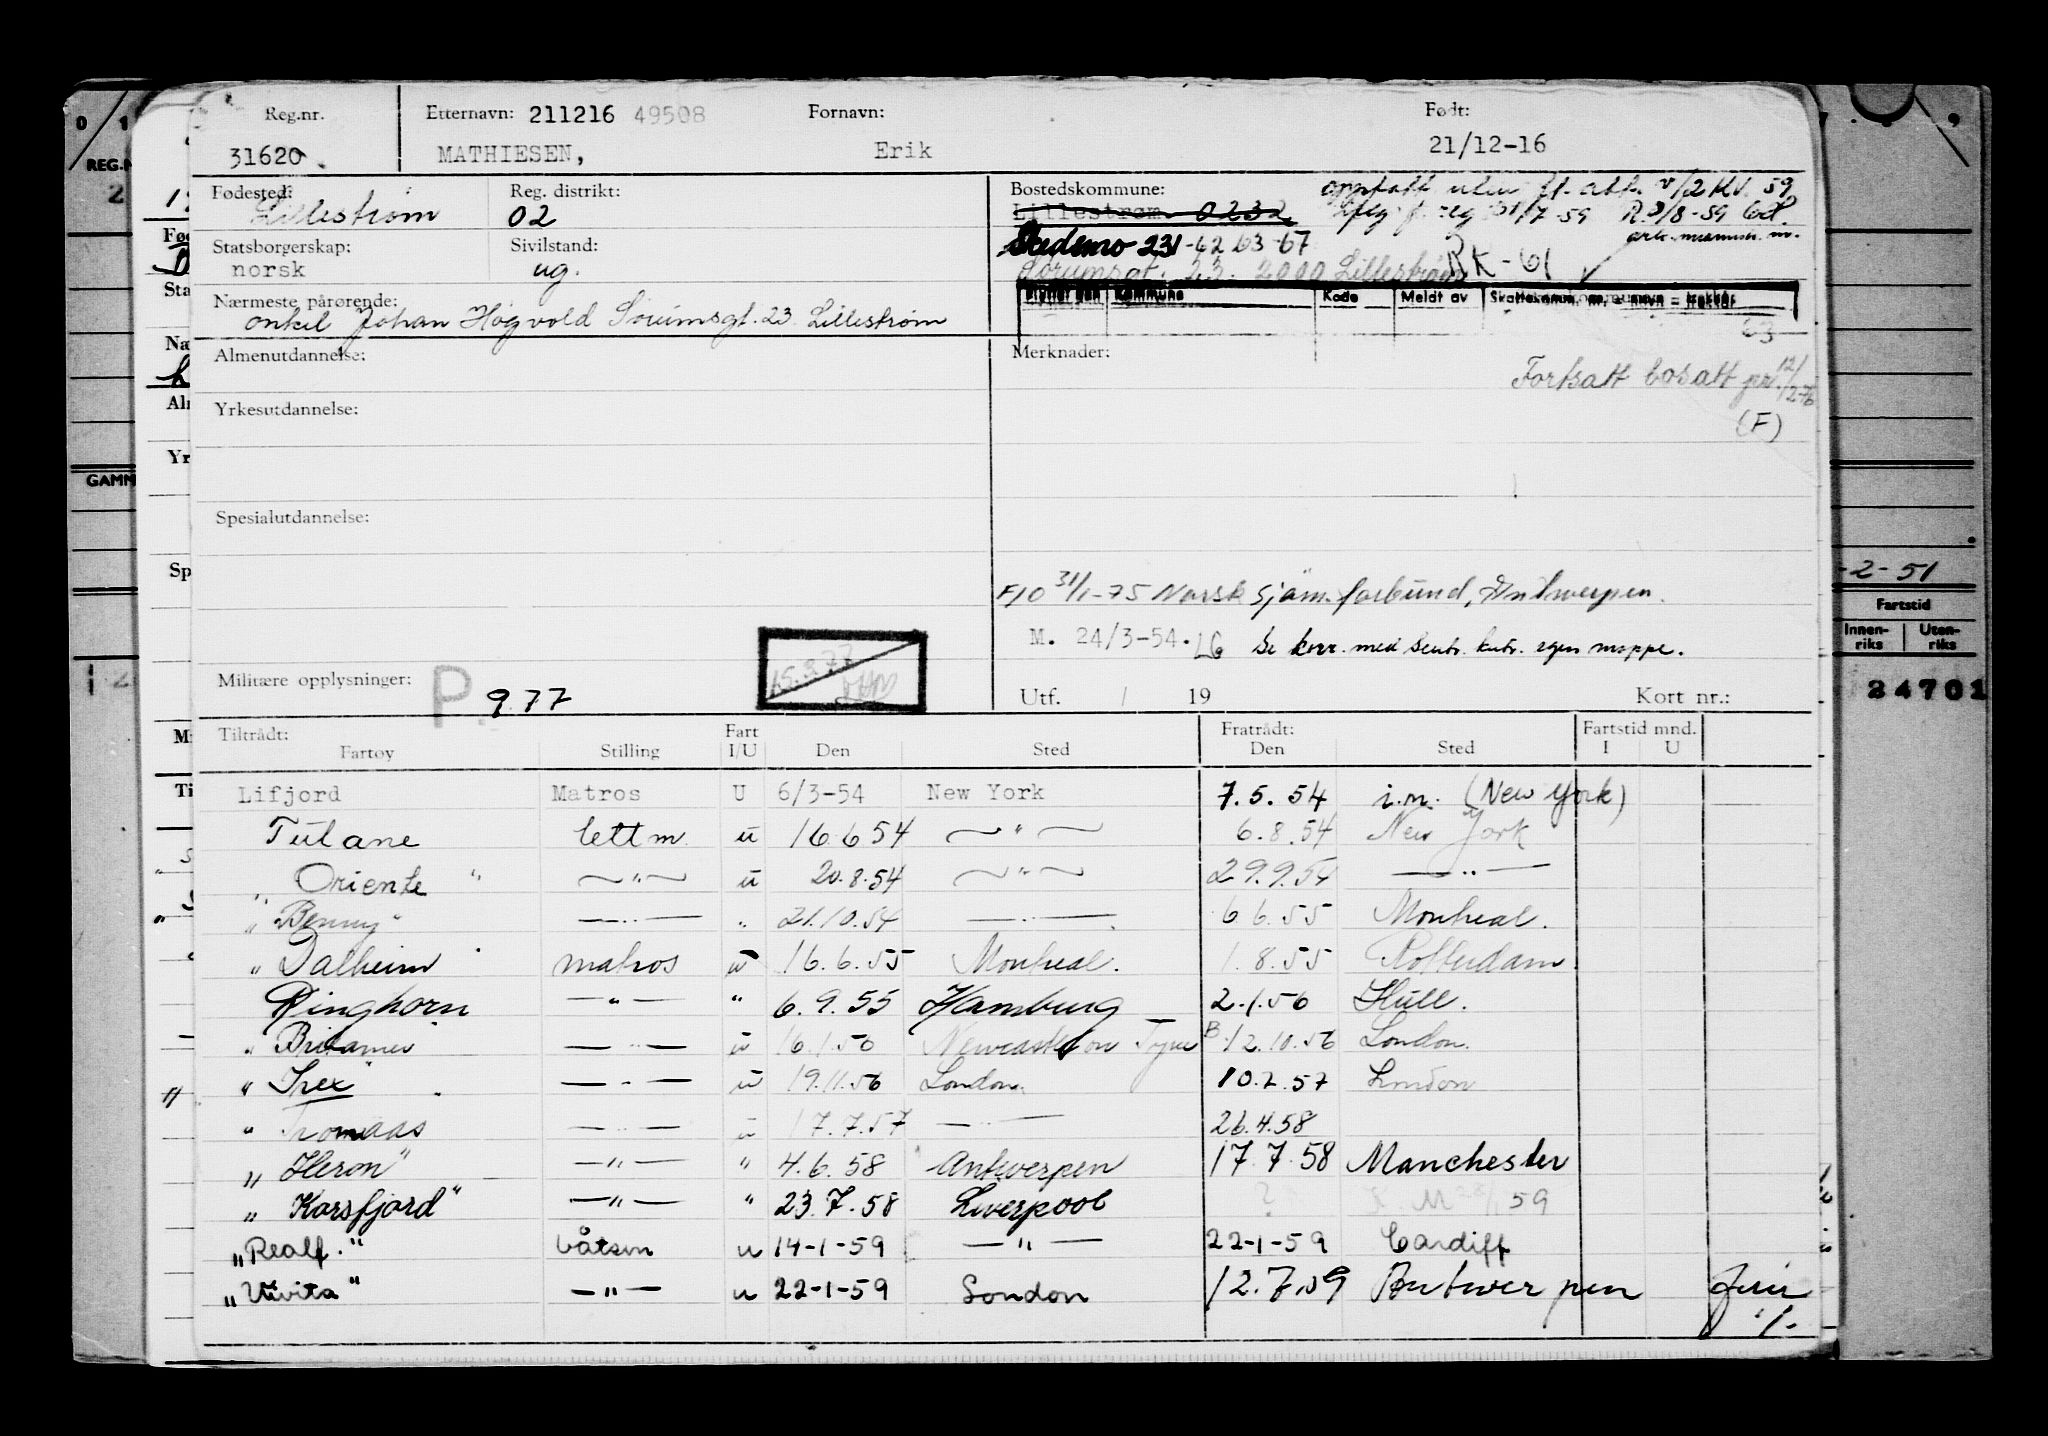 Reg.nr. Etternavn: 211216 49508 Fornavn: Født:
31620 MATHIESEN, Erik 21/12-16
Fødested: Reg. distrikt: Bostedskommune:
Lillestrøm 02 Lillestrøm 0232
Statsborgerskap: Sivilstand: Skedsmo 231-62 63-67
norsk ug. Sørumsgt. 23. 2000 Lillestrøm RK-61
Kommune Kode Meldt av
Nærmeste pårørende:
onkel Johan Høgvold Sørumsgt. 23 Lillestrøm 63
Almenutdannelse: Merknader:
Fortsatt bosatt pr. 12/2-76
(F)
Yrkesutdannelse:
Spesialutdannelse:
F/O 31/1-75 Norsk Sjøm.forbund, Antwerpen.
M. 24/3-54. LG Se korr. med Sentr. kntr. egen mappe.
Militære opplysninger: P 9.77 15.3.77
Utf. / 19 Kort nr.:
Tiltrådt: Fart Fratrådt: Fartstid mnd.
Fartøy Stilling I/U Den Sted Den Sted I U
Lifjord Matros U 6/3-54 New York 7.5.54 i.m. (New York)
Tulane lettm. u 16 6 54 —"— 6.8.54 New York
Oriente" —"— u 20.8.54 —"— 29.9.54 —"—
"Benny" —"— " 21.10.54 —"— 6 6.55 Montreal.
"Dalheim matros u 16.6.55 Montreal. 1.8.55 Rotterdam
Ringhorn —"— " 6.9.55 Hamburg 2.1.56 Hull.
" Britamer —"— u 16.1.56 Newcastle on Tyne B.12.10.56 London.
" Irex —"— u 19.11.56 London. 10.2.57 London
" Tromaas —"— u 17.7.57 —"— 26.4.58
"Heron" —"— " 4.6.58 Antwerpen 17.7.58 Manchester
"Korsfjord" —"— " 23.7.58 Liverpool ? 59
"Realf." båtsm u 14-1-59 —"— 22-1-59 Cardiff
"Vivita" —"— u 22-1-59 London 12.7.59 Antwerpen
REG.N
GAMM
-2-51
Fartstid
Innen-riks Uten-riks
24701